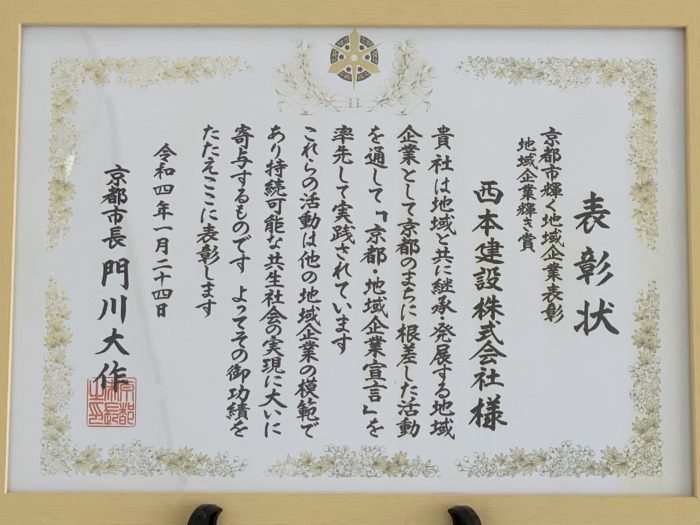 表彰状
京都市輝く地域企業表彰
地域企業輝き賞
西本建設株式会社様
貴社は地域と共に継承・発展する地域
企業として京都のまちに根差した活動
を通して「京都・地域企業宣言」を
率先して実践されています
これらの活動は他の地域企業の模範で
あり持続可能な共生社会の実現に大いに
寄与するものです よってその御功績を
たたえここに表彰します
令和四年一月二十四日
京都市長 門川大作
京都市長之印